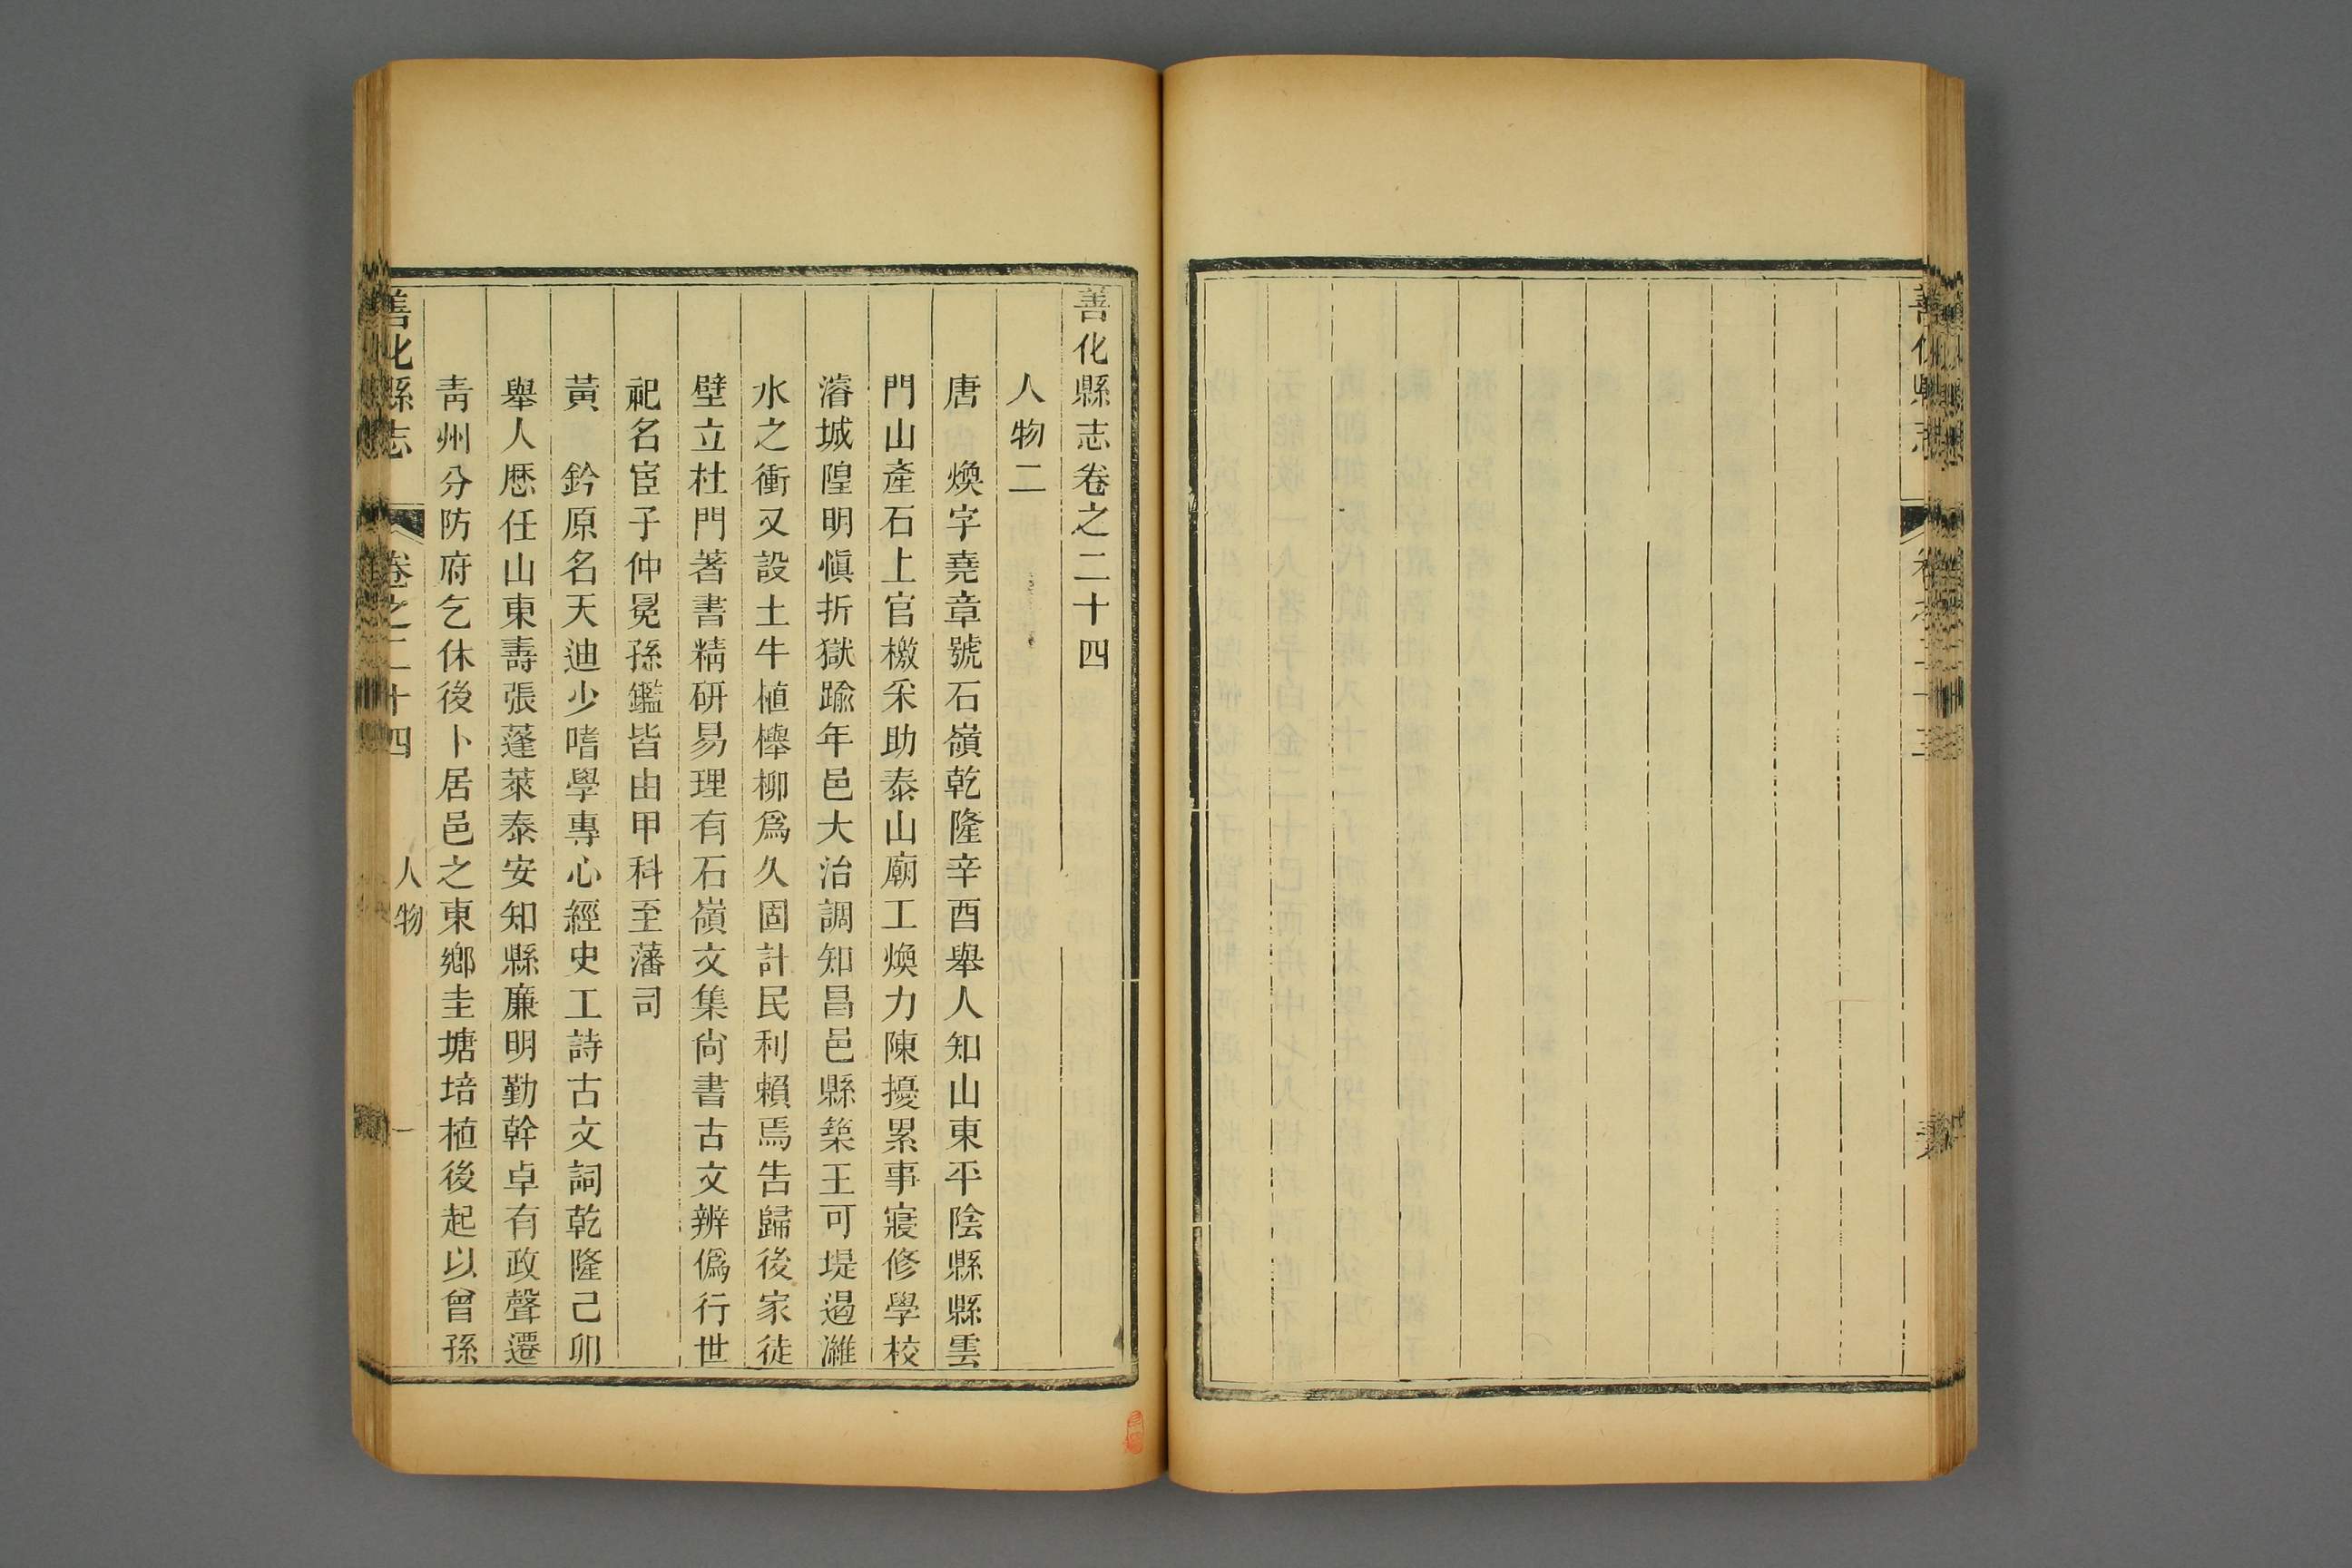 善化縣志卷之二十四
人物二
唐　煥字堯章號石嶺乾隆辛酉舉人知山東平陰縣縣雲
門山產石上官檄采助泰山廟工煥力陳擾累事寢修學校
濬城隍明愼折獄踰年邑大治調知昌邑縣築王可堤遏濰
水之衝又設土牛植櫸柳爲久固計民利賴焉告歸後家徒
壁立杜門著書精研易理有石嶺文集尙書古文辨僞行世
祀名宦子仲冕孫鑑皆由甲科至藩司
黃　鈐原名天迪少嗜學專心經史工詩古文詞乾隆己卯
舉人歷任山東壽張蓬萊泰安知縣廉明勤幹卓有政聲遷
靑州分防府乞休後卜居邑之東鄉圭塘培植後起以曾孫
善化縣志　卷之二十四　人物　一